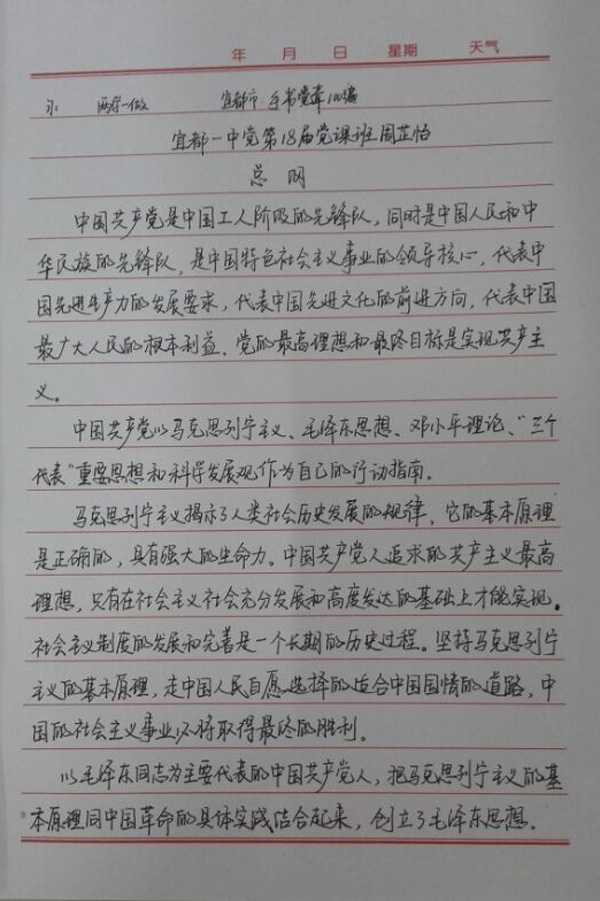 年 月 日 星期 天气
两学一做 宜都市 手书党章100遍
宜都一中党第18届党课班 周芷怡
总纲
中国共产党是中国工人阶级的先锋队，同时是中国人民和中
华民族的先锋队，是中国特色社会主义事业的领导核心，代表中
国先进生产力的发展要求，代表中国先进文化的前进方向，代表中国
最广大人民的根本利益。党的最高理想和最终目标是实现共产主
义。
中国共产党以马克思列宁主义、毛泽东思想、邓小平理论、“三个
代表”重要思想和科学发展观作为自己的行动指南。
马克思列宁主义揭示了人类社会历史发展的规律，它的基本原理
是正确的，具有强大的生命力。中国共产党人追求的共产主义最高
理想，只有在社会主义社会充分发展和高度发达的基础上才能实现。
社会主义制度的发展和完善是一个长期的历史过程。坚持马克思列宁
主义的基本原理，走中国人民自愿选择的适合中国国情的道路，中
国的社会主义事业必将取得最终的胜利。
以毛泽东同志为主要代表的中国共产党人，把马克思列宁主义的基
本原理同中国革命的具体实践结合起来，创立了毛泽东思想。